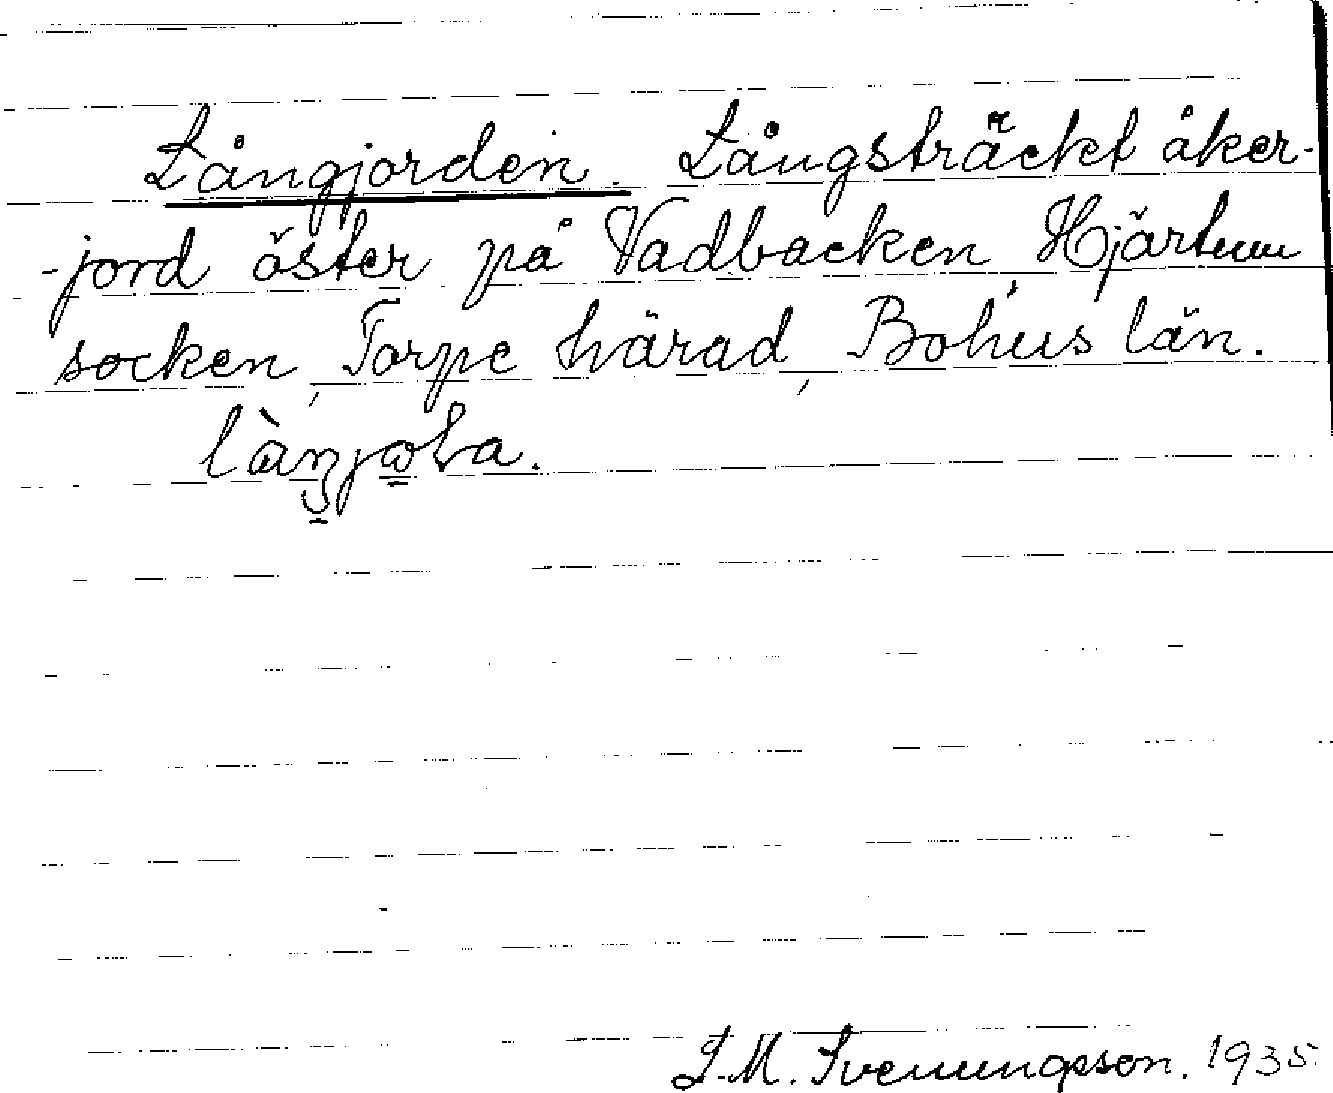 Långjorden. Långsträckt åker-
-jord öster på Vadbacken, Hjärtum
socken, Torpe härad, Bohus län.
S.M. Svenungsson. 1935